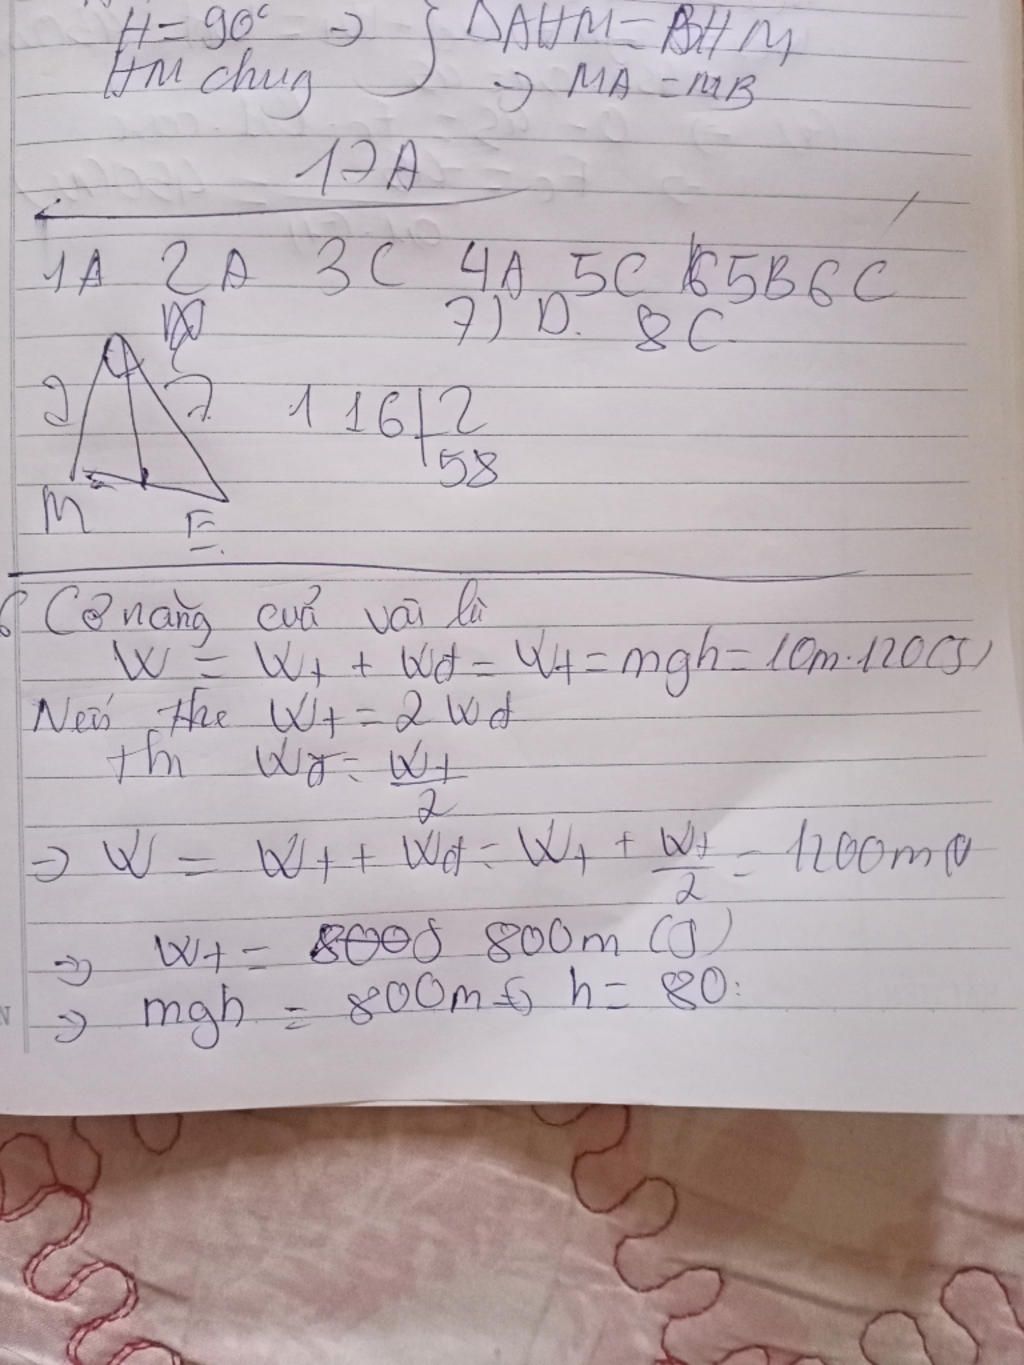 H = 90° ⇒ } ΔAHM = BHM
HM chug ⇒ MA = MB
17A
1A 2A 3C 4A 5C 65B6C
7) D. 8C
9 7 116 2
58
M E
Cơ năng cuả vâ là
W = Wt + Wđ = Wt = mgh = 10m.120(J)
Nếú the Wt = 2Wđ
thì Wđ = Wt/2
⇒ W = Wt + Wđ = Wt + Wt/2 = 1200m
⇒ Wt = 800m (J)
⇒ mgh = 800m h = 80